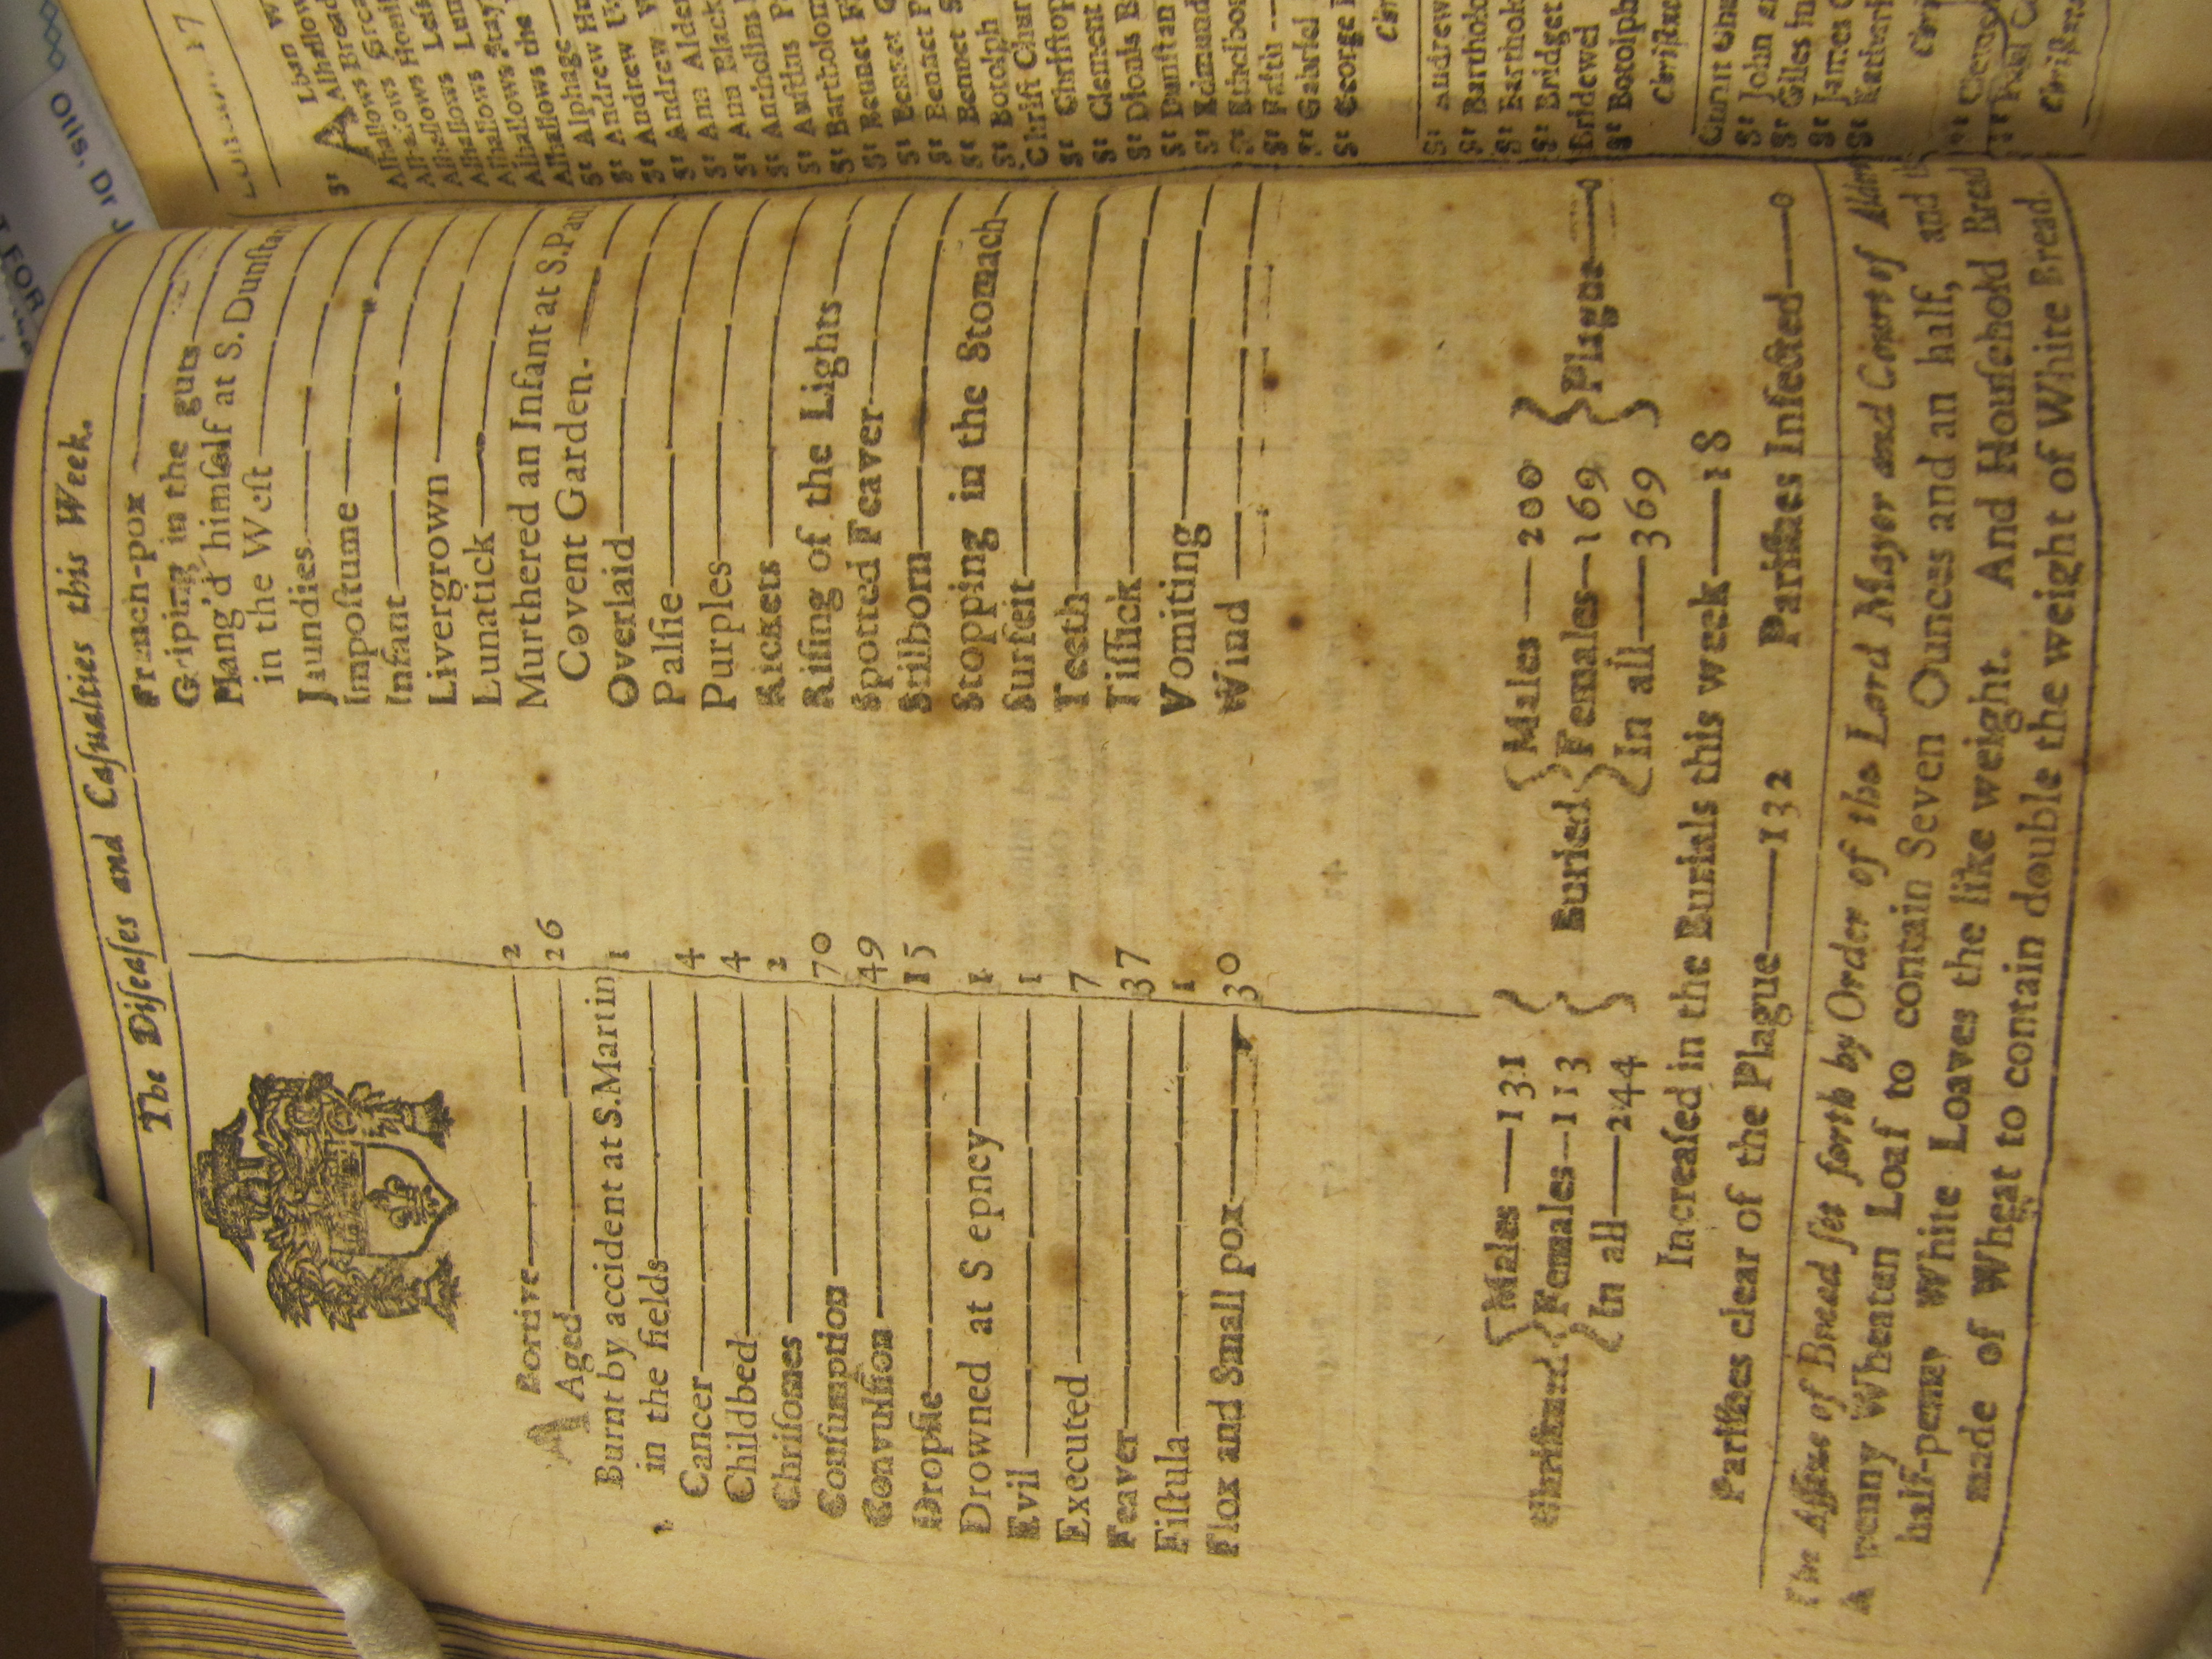 The Diſeaſes and Caſualties this Week.
ABortive 2
Aged 26
Burnt by accident at S. Martin
in the fields 1
Cancer 4
Childbed 4
Chriſomes 2
Conſumption 70
Convulſion 49
Dropſie 15
Drowned at S epney 1
Evil 1
Executed 7
Feaver 37
Fiſtula 1
Flox and Small pox 30
French-pox
Griping in the guts
Hang'd himſelf at S. Dunſtan
in the Weſt
Jaundies
Impoſtume
Infant
Livergrown
Lunatick
Murthered an Infant at S. Paul
Covent Garden.
Overlaid
Palſie
Purples
Rickets
Riſing of the Lights
Spotted Feaver
Stilborn
Stopping in the Stomach
Surfeit
Teeth
Tiſſick
Vomiting
Wind
Chriſtned { Males — 131 Females — 113 In all — 244 }
Buried { Males — 200 Females — 169 In all — 369 }
Plague — 0
Increaſed in the Burials this week — 18
Pariſhes clear of the Plague — 132 Pariſhes Infected — 0
The Aſſize of Bread ſet forth by Order of the Lord Mayor and Court of
A penny Wheaten Loaf to contain Seven Ounces and an half, and
half-peny White Loaves the like weight. And Houſehold Bread
made of Wheat to contain double the weight of White Bread.
Otis, Dr
FOR
17
Alhallows
St Alphage
St Andrew
St Andrew
St Andrew
St Ann
St Ann Black
St Bennet
St Bennet
St Bennet
St Botolph
Chriſt Chur
St Chriſtop
St Clement
St Dionis B
St Dunſtan
St Edmund
St Faith
St Gabriel
St George
St Andrew
St Barthol
St Barthol
St Bridget
Bridewel
St Botolph
Chriſtn
St John
St Giles
St James
St Katheri